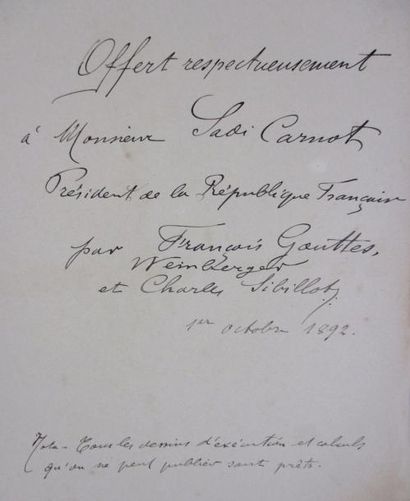 Offert respectueusement
à Monsieur Sadi Carnot
Président de la République Française
par François Gouttes,
Weinberger
et Charles Sibillot.
1er octobre 1892.
Nota - Tous les dessins d'exécution et calculs
qu'on ne peut publier sont prêts.